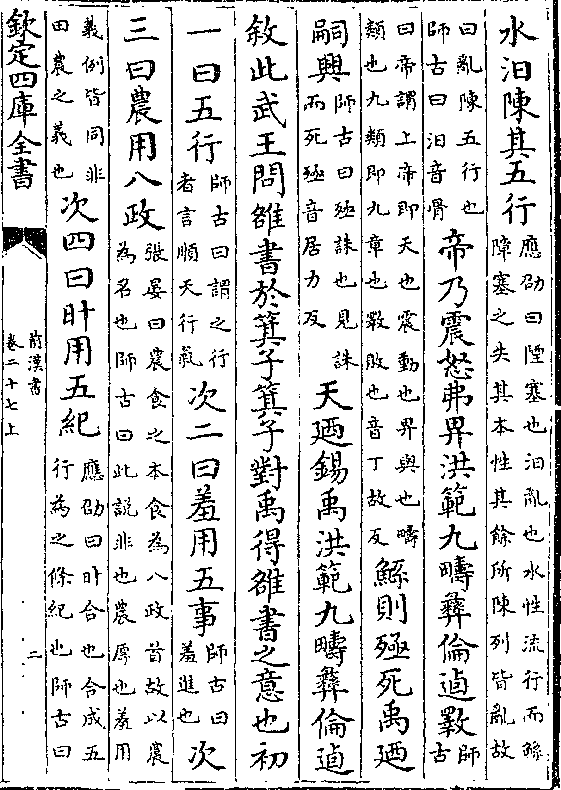 水汩陳其五行應劭曰陻塞也汩亂也水性流行而鯀障塞之失其本性其餘所陳列皆亂故
曰亂陳五行也師古曰汩音骨帝乃震怒弗畀洪範九疇彝倫逌斁師古
曰帝謂上帝即天也震動也畀與也疇類也九類即九章也斁敗也音丁故反鯀則殛死禹廼
嗣興師古曰殛誅也見誅而死殛音居力反天廼錫禹洪範九疇彝倫逌
敘此武王問雒書於箕子箕子對禹得雒書之意也初
一曰五行師古曰謂之行者言順天行氣次二曰羞用五事師古曰羞進也次
三曰農用八政張晏曰農食之本食為八政首故以農為名也師古曰此說非也農厚也羞用
義例皆同非田農之義也次四曰旪用五紀應劭曰旪合也合成五行為之條紀也師古曰
欽定四庫全書
前漢書
卷二十七上
二